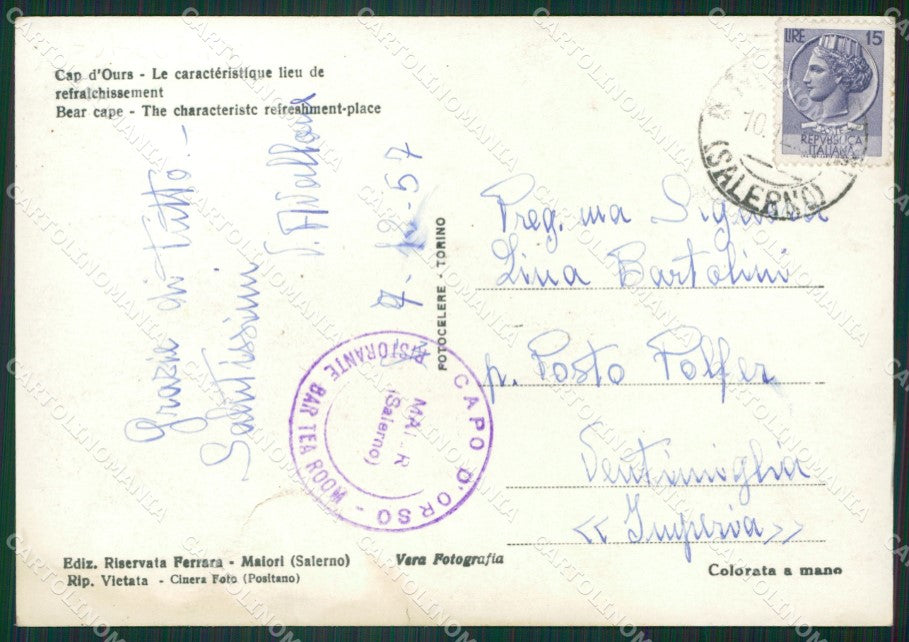 Cap d'Ours - Le caractéristique lieu de
refraichissement
Bear cape - The characteristc refreshment-place
Grazie di tutto.-
Salutissimi
9-12-57
FOTOCELERE - TORINO
LIRE 15
POSTE
REPVBBLICA
ITALIANA
10.
(SALERNO)
Preg.ma Signora
Lina Bartolini
p. Posto Polfer
Ventimiglia
<< Imperia >>
CAPO D'ORSO -
RISTORANTE BAR TEA ROOM
(Salerno)
Ediz. Riservata Ferrara - Maiori (Salerno)
Rip. Vietata - Cinera Foto (Positano)
Vera Fotografia
Colorata a mano
CARTOLINOMANIA